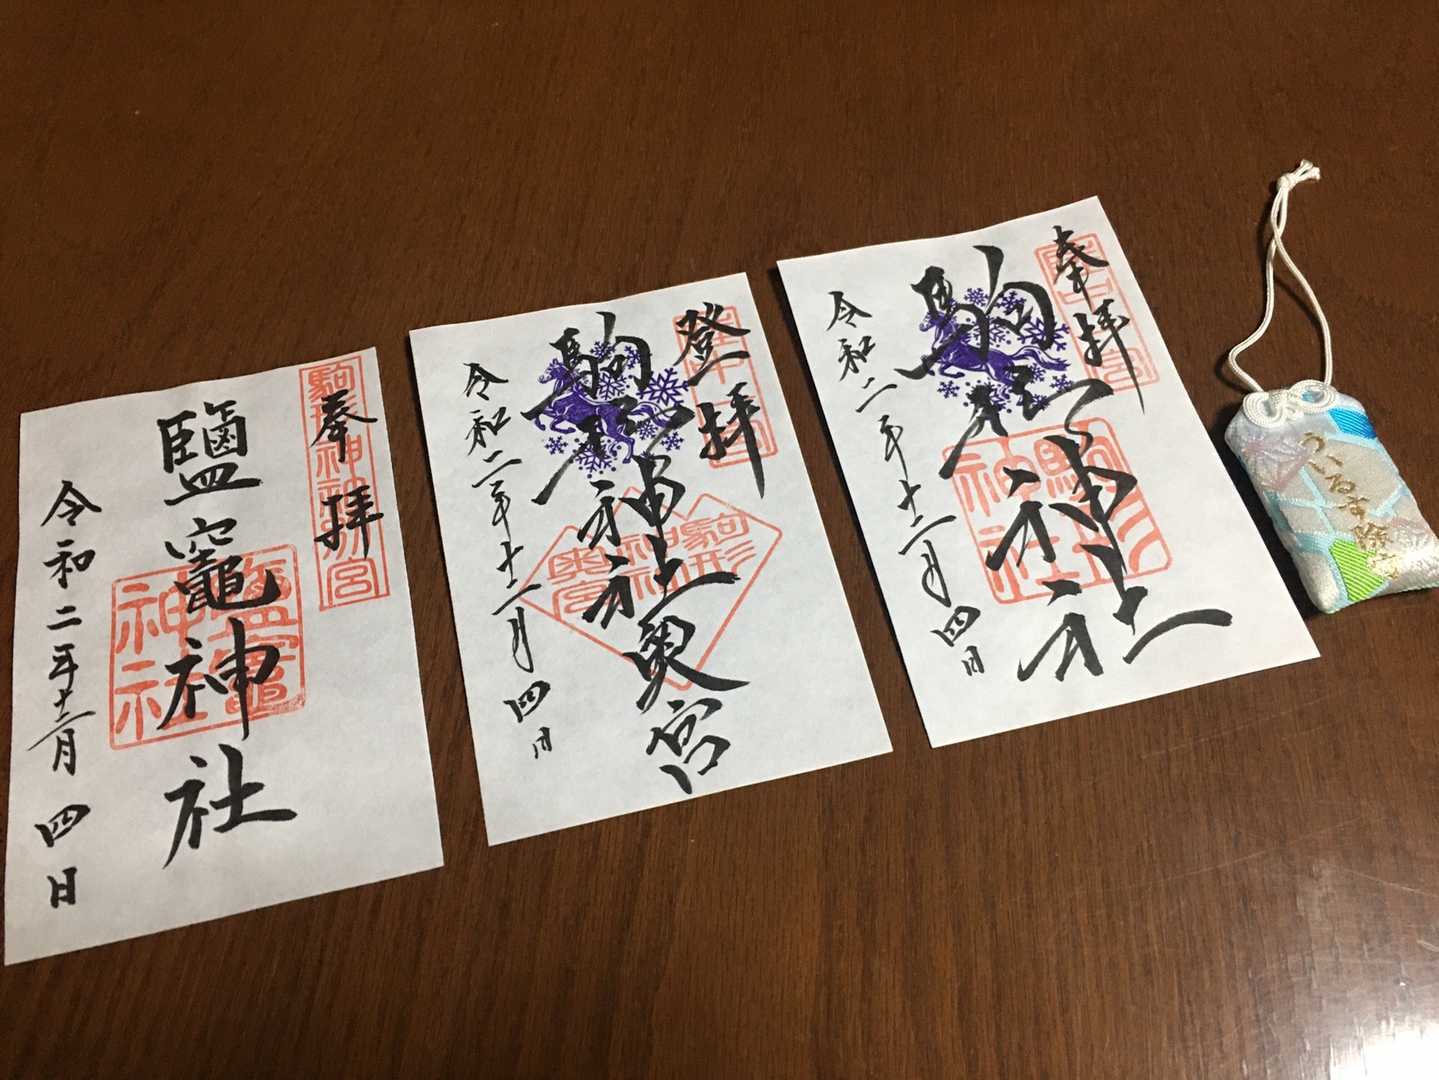 奉拝
鹽竈神社
鹽竈神社
令和二年十二月四日
登拝
陸中一宮
駒形神社奥宮
駒形神社奥宮
令和二年十二月四日
奉拝
陸中一宮
駒形神社
駒形神社
令和二年十二月四日
ういるす除